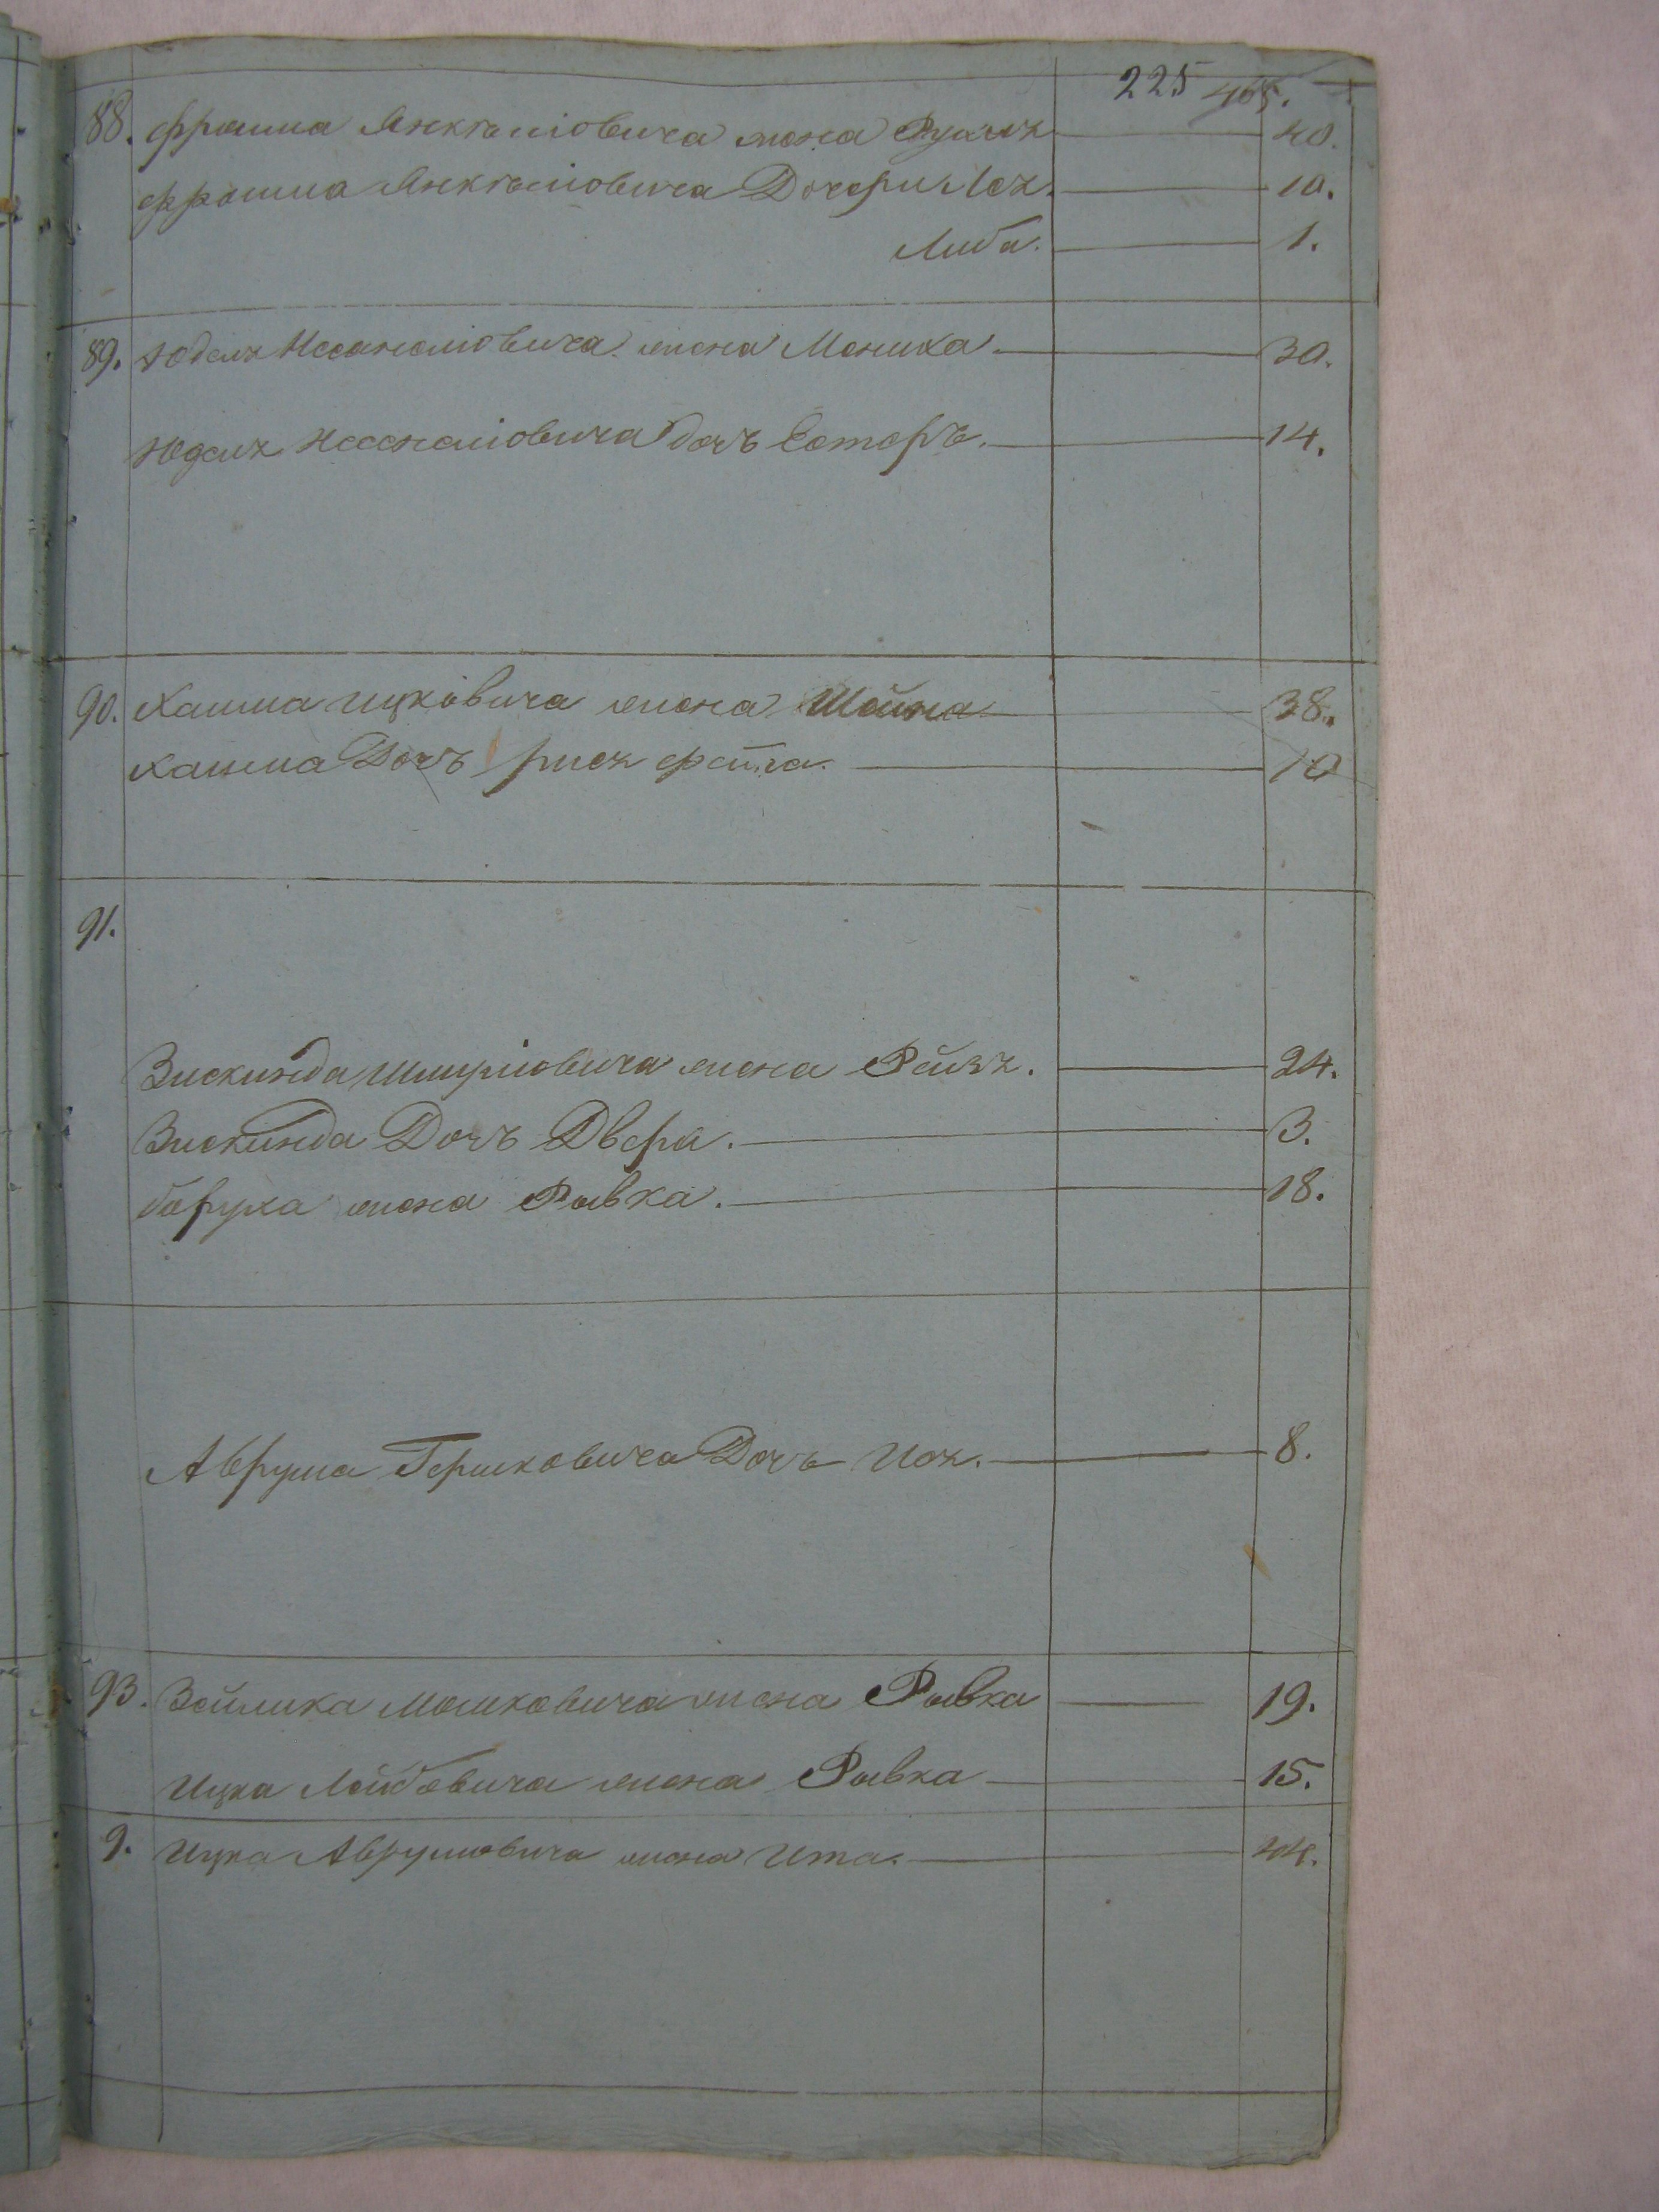 225 465.
88. Фроима Янкелiовича жена Рухля 40.
Фроима Янкелiовича Дочери Лея. 10.
Либа. 1.
89. Юделя Несанелiовича жена Мениха. 30.
Юделя Несанелiовича дочъ Естеръ. 14.
90. Хаима ицковича жена Шейна 38.
Хаима Дочъ рися фейга. 10
91.
Зискинда Шмулiовича жена Рейзя. 24.
Зискинда Дочъ Двера. 3.
боруха жена Рывка. 18.
Аврума Гершковича Дочъ 8.
93. Зейлика Мошковича жена Рывка 19.
Ицка Лейбовича жена Рывка 15.
9. Ицка Аврумовича жена Ита. 44.